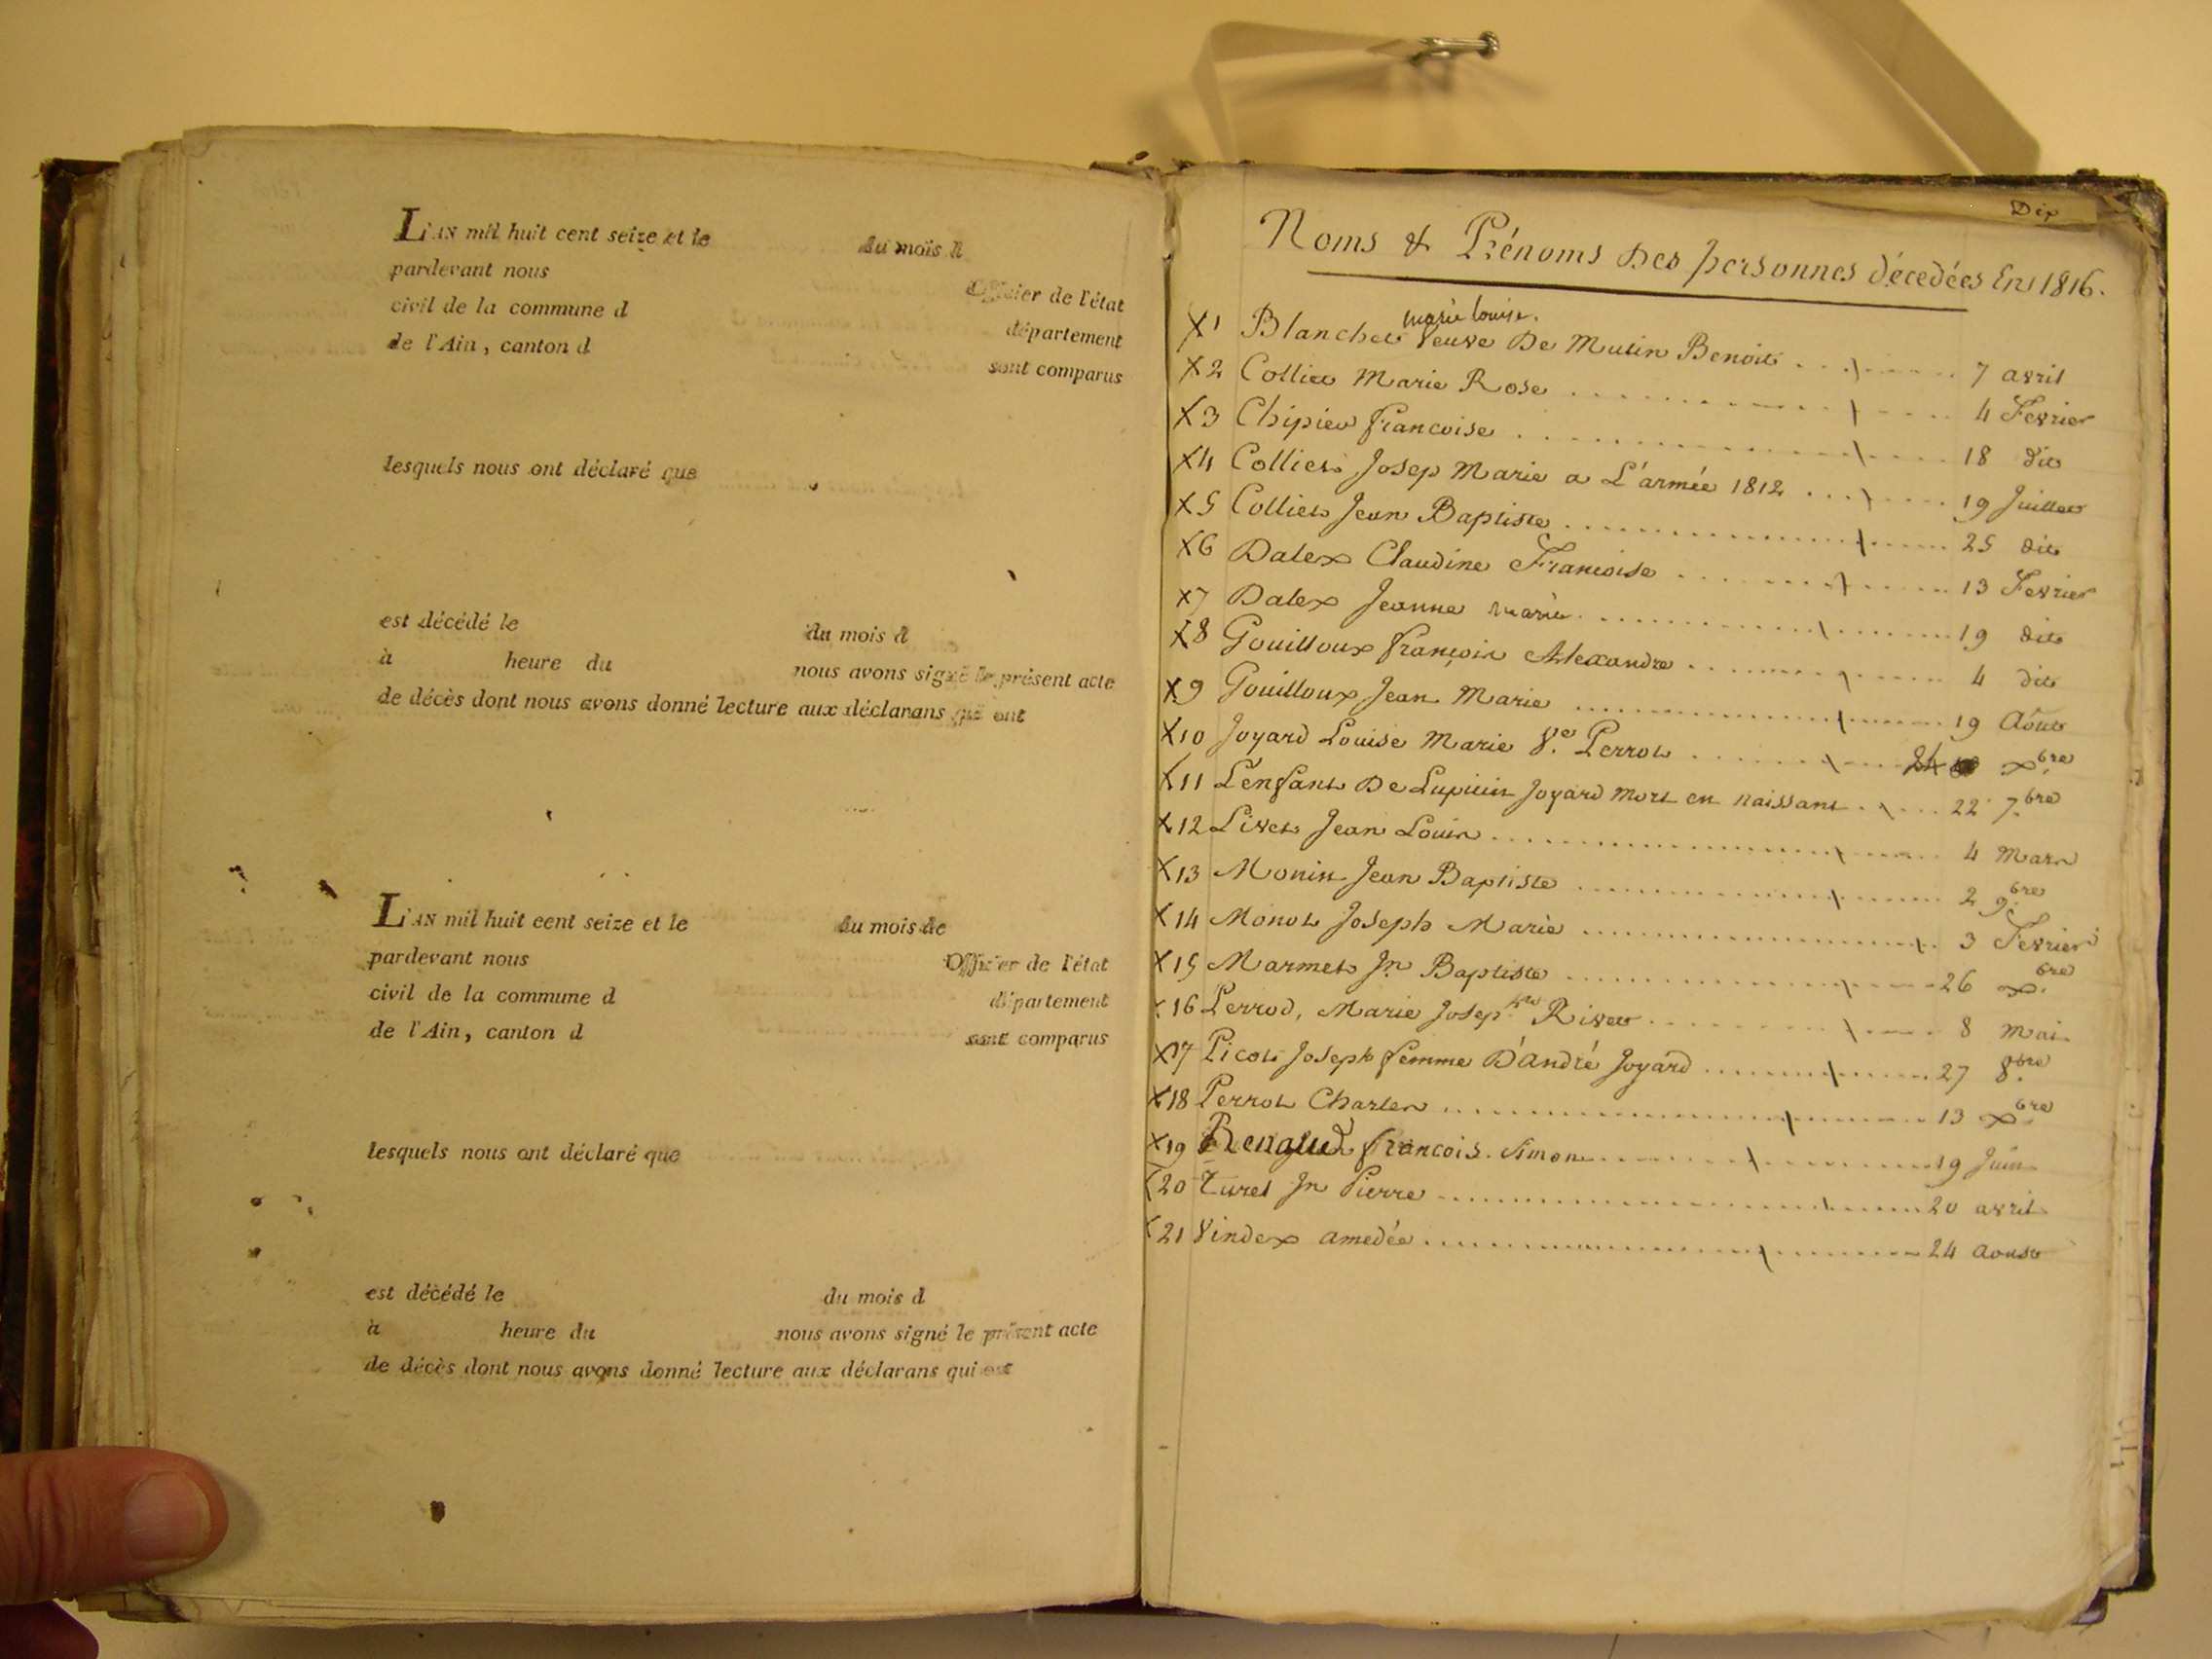 L'AN mil huit cent seize et le du mois d
pardevant nous Officier de l'état
civil de la commune d département
de l'Ain, canton d sont comparus
lesquels nous ont déclaré que
est décédé le du mois d
à heure du nous avons signé le présent acte
de décès dont nous avons donné lecture aux déclarans qui ont
L'AN mil huit cent seize et le du mois de
pardevant nous Officier de l'état
civil de la commune d département
de l'Ain, canton d sont comparus
lesquels nous ont déclaré que
est décédé le du mois d
à heure du nous avons signé le présent acte
de décès dont nous avons donné lecture aux déclarans qui ont
Dix
Noms & Prénoms Des personnes décedées En 1816.
marie louise.
X1 Blanchet Veuve De Mutin Benoit 7 avril
X2 Colliet Marie Rose 4 Fevrier
X3 Chipier francoise 18 dit
X4 Colliet Josep Marie a L'armée 1812 19 Juillet
X5 Colliet Jean Baptiste 25 dit
X6 Dalex Claudine Francoise 13 Fevrier
X7 Dalex Jeanne marie 19 dit
X8 Gouilloux françois Alexandre 4 dit
X9 Gouilloux Jean Marie 19 Aout
X10 Joyard Louise Marie Ve. Perrot 24 Xbre
X11 L'enfant De Lupicin Joyard mort en naissant 22 7.bre
X12 Livet Jean Louis 4 Mars
X13 Monin Jean Baptiste 2 9.bre
X14 Monot Joseph Marie 3 Fevrier
X15 Marmet Jn Baptiste 26 Xbre
X16 Perrod, Marie Josephte Rivet 8 Mai
X17 Picot Joseph femme D'André Joyard 27 8bre
X18 Perrot Charles 13 Xbre
X19 Renaud francois. Simon 19 Juin
X20 Turel Jn Pierre 20 avril
X21 Vindex amedée 24 aoust